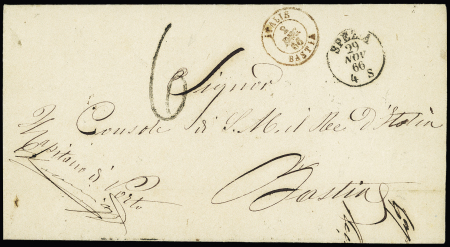 ITALIE
2
DEC
66
BASTIA
SPEZIA
29
NOV
66
4 S
6
Signor
Console di S. M. il Re d'Italia
Il Capitano di Porto
Bastia